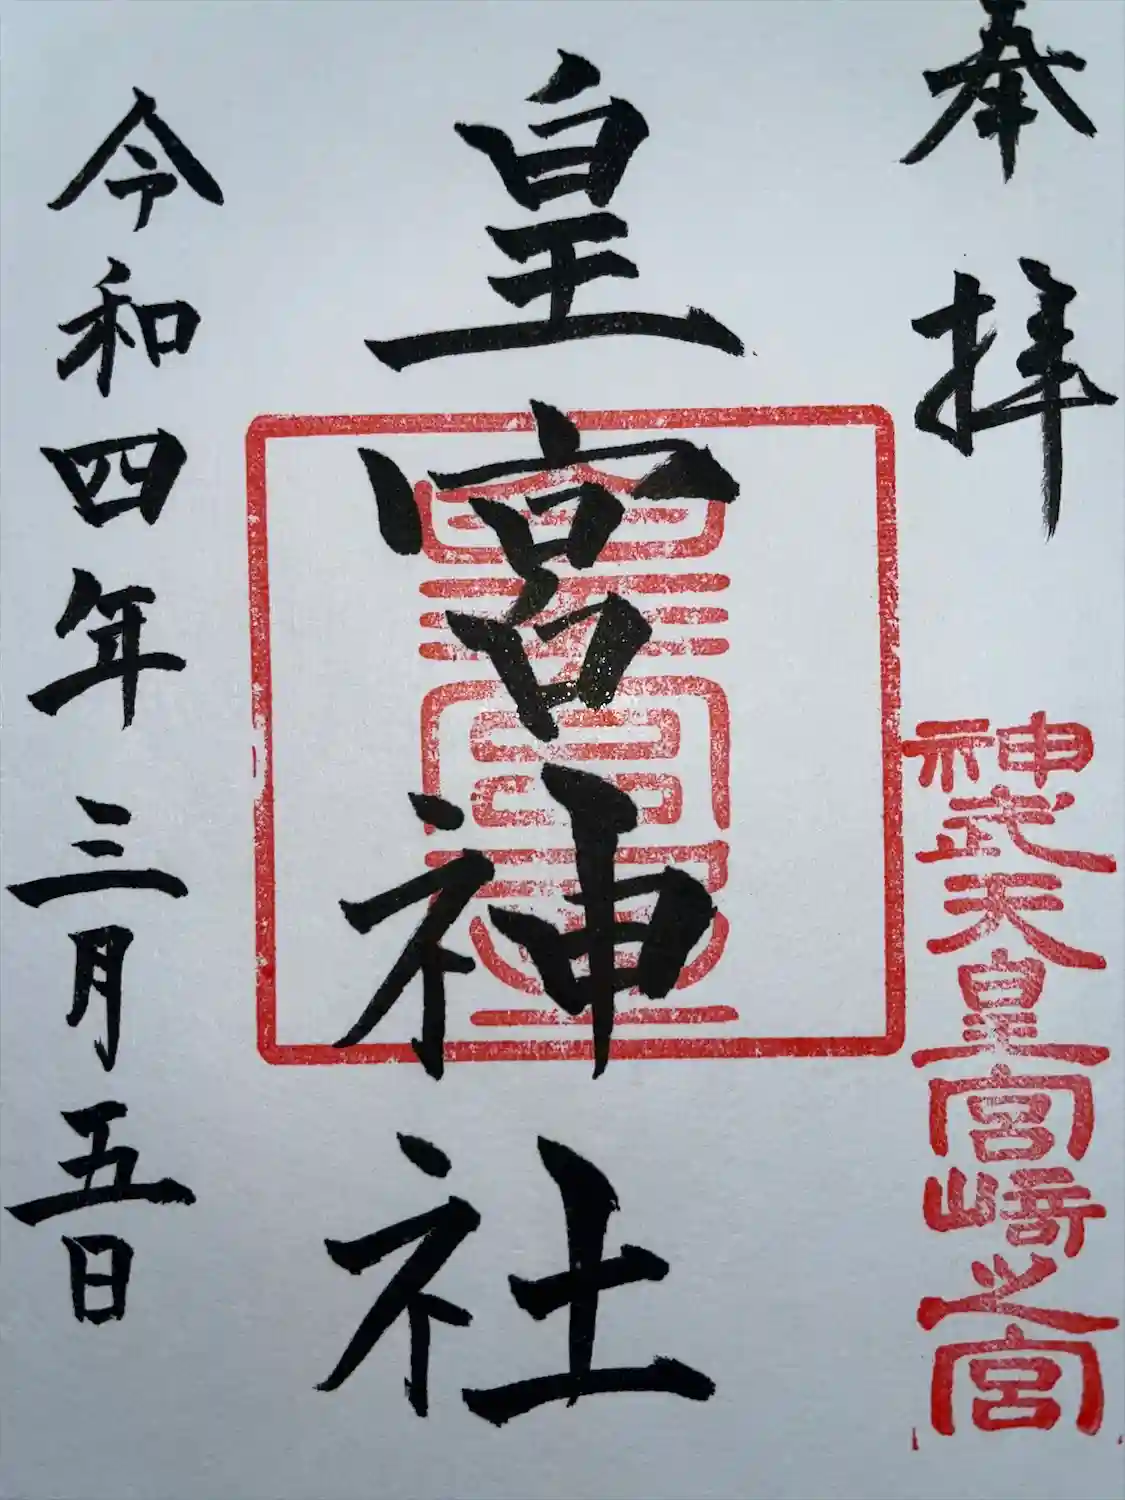 奉拝
神武天皇宮崎之宮
皇宮神社
令和四年三月五日